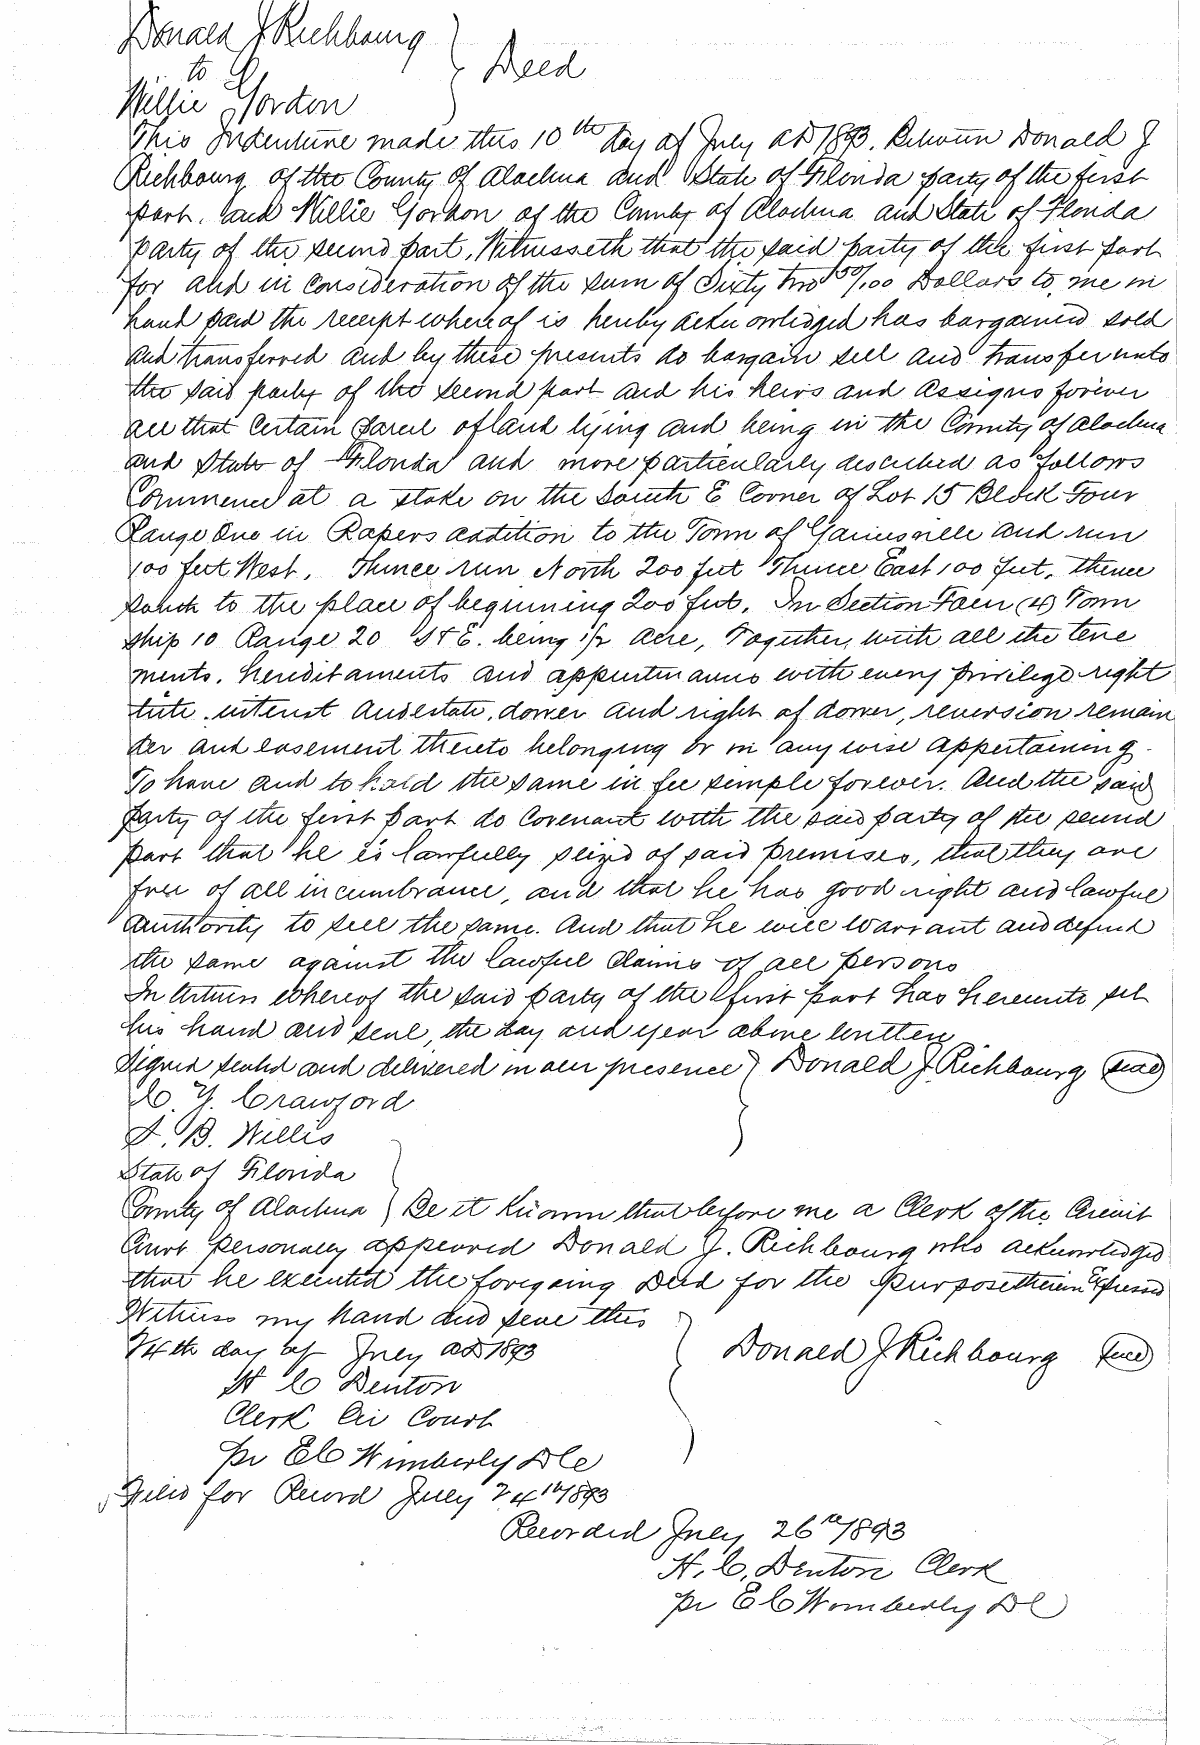 Donald J Richbourg
to } Deed
Willie Gordon
This Indenture made this 10th day of July AD 1893. Between Donald J
Richbourg of the County of Alachua and State of Florida party of the first
part. and Willie Gordon of the County of Alachua and State of Florida
party of the second part, Witnesseth that the said party of the first part
for and in consideration of the sum of Sixty two 50/100 Dollars to me in
hand paid the receipt whereof is hereby acknowledged has bargained sold
and transferred and by these presents do bargain sell and transfer unto
the said party of the second part and his heirs and assigns forever
all that certain parcel of land lying and being in the County of Alachua
and State of Florida and more particularly described as follows
Commence at a stake on the South E Corner of Lot 15 Block Four
Range One in Rapers addition to the Town of Gainesville and run
100 feet West. Thence run North 200 feet Thence East 100 feet. thence
south to the place of beginning 200 feet. In Section Four (4) Town
ship 10 Range 20 S & E. being 1/2 acre, Together with all the tene
ments. hereditaments and appurtenances with every privilege right
title. interest and estate, dower and right of dower, reversion remain
der and easement thereto belonging or in any wise appertaining.
To have and to hold the same in fee simple forever. And the said
party of the first part do covenant with the said party of the second
part that he is lawfully seized of said premises, that they are
free of all incumbrance, and that he has good right and lawful
authority to sell the same. And that he will warrant and defend
the same against the lawful claims of all persons
In Witness whereof the said party of the first part has hereunto set
his hand and seal, the day and year above written
Signed sealed and delivered in our presence } Donald J. Richbourg (seal)
C. Y. Crawford
S. B. Willis
State of Florida
County of Alachua } Be it known that before me a Clerk of the Circuit
Court personally appeared Donald J. Richbourg who acknowledged
that he executed the foregoing Deed for the purpose therein Expressed
Witness my hand and seal this
24th day of July AD 1893 Donald J Richbourg (seal)
H C Denton
Clerk Cir Court
pr E C Wimberly D C
Filed for Record July 24th 1893
Recorded July 26th 1893
H. C. Denton Clerk
pr E C Wimberly D C